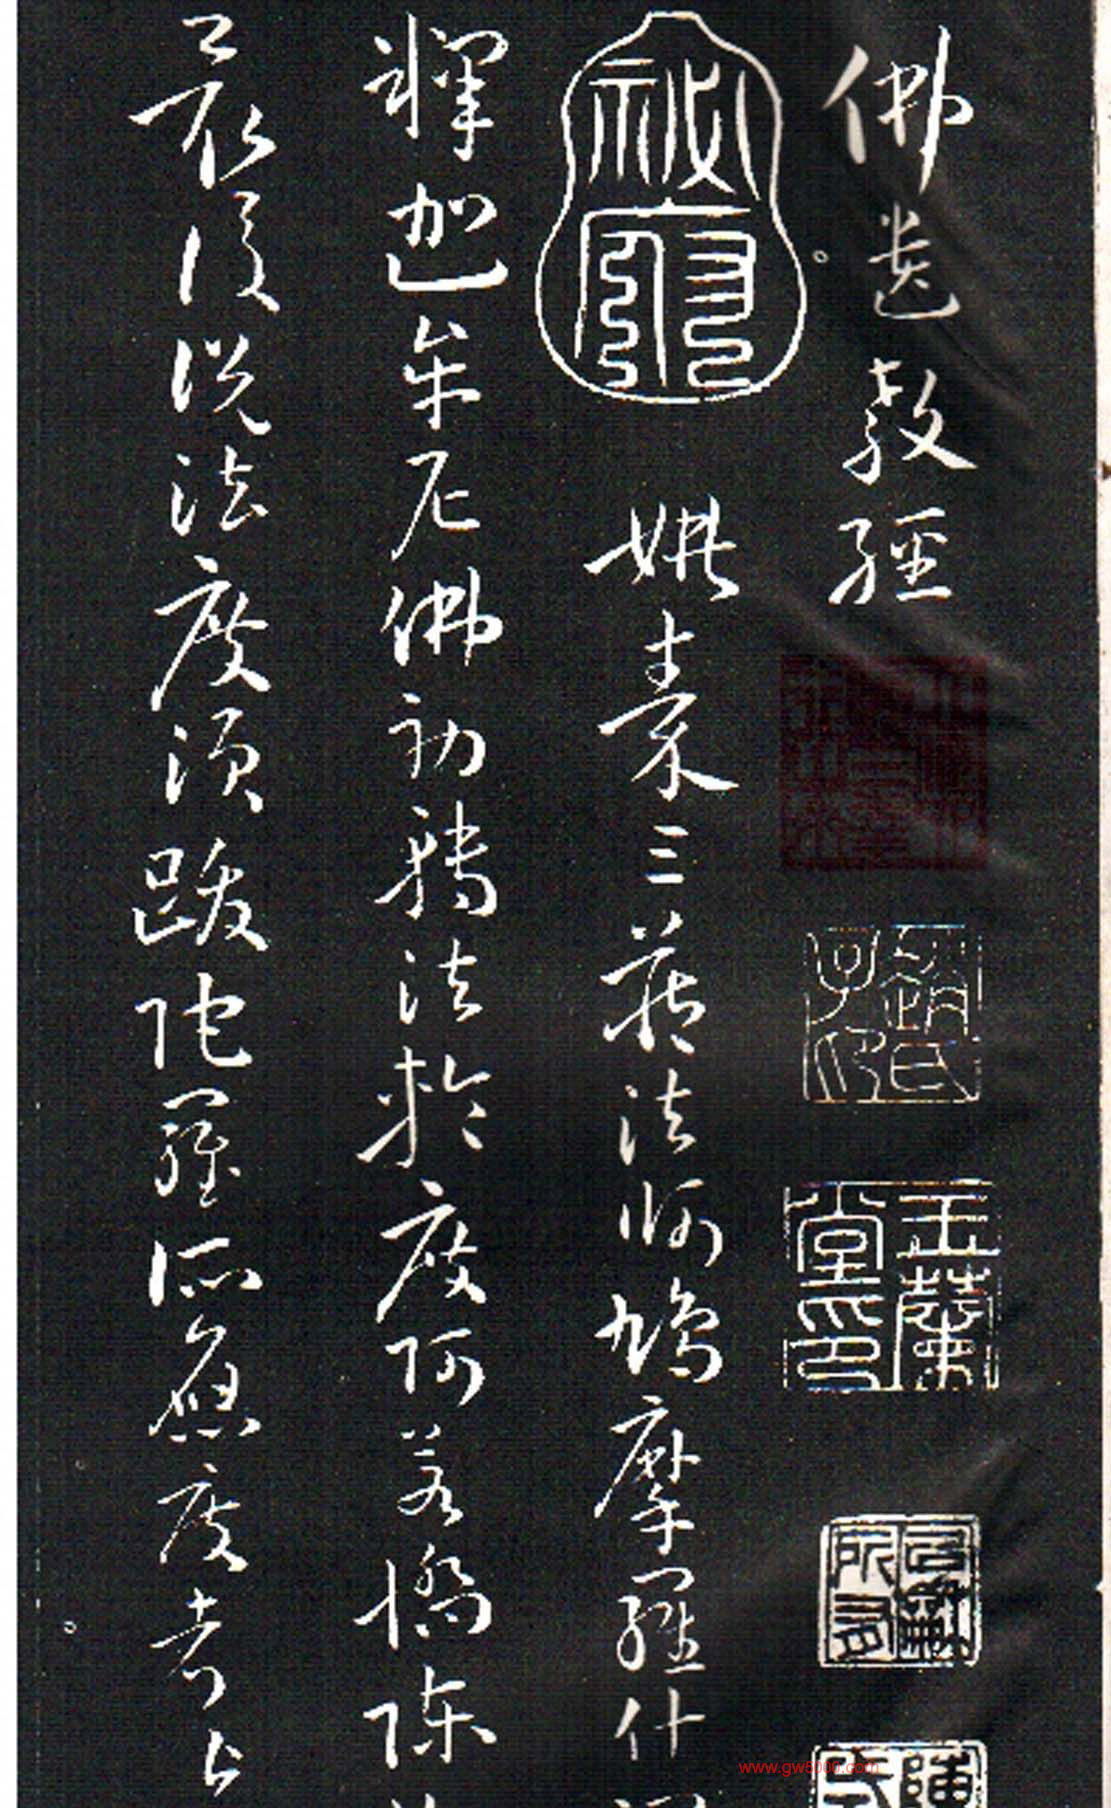 佛遺教經
姚秦三藏法師鳩摩羅什
釋迦牟尼佛初轉法輪度阿若憍陳
最後說法度須跋陀羅所應度者已
趙氏子印
玉蘭堂印
www.gw8000.com